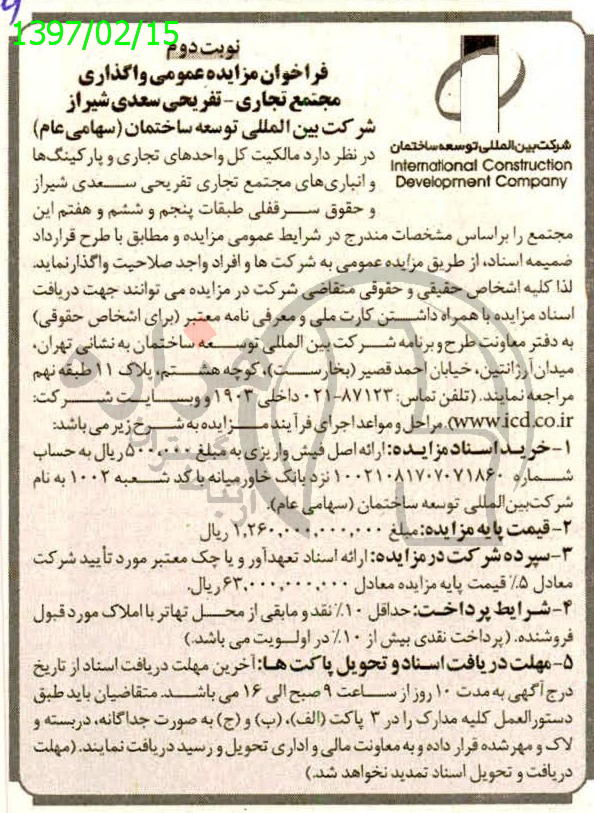 1397/02/15
نوبت دوم
فراخوان مزایده عمومی واگذاری
مجتمع تجاری - تفریحی سعدی شیراز
شرکت بین‌المللی توسعه ساختمان
International Construction
Development Company
شرکت بین المللی توسعه ساختمان (سهامی عام)
در نظر دارد مالکیت کل واحدهای تجاری و پارکینگ‌ها
و انباری‌های مجتمع تجاری تفریحی سعدی شیراز
و حقوق سرقفلی طبقات پنجم و ششم و هفتم این
مجتمع را براساس مشخصات مندرج در شرایط عمومی مزایده و مطابق با طرح قرارداد
ضمیمه اسناد، از طریق مزایده عمومی به شرکت ها و افراد واجد صلاحیت واگذار نماید.
لذا کلیه اشخاص حقیقی و حقوقی متقاضی شرکت در مزایده می توانند جهت دریافت
اسناد مزایده با همراه داشتن کارت ملی و معرفی نامه معتبر (برای اشخاص حقوقی)
به دفتر معاونت طرح و برنامه شرکت بین المللی توسعه ساختمان به نشانی تهران،
میدان آرژانتین، خیابان احمد قصیر (بخارست)، کوچه هشتم، پلاک ۱۱ طبقه نهم
مراجعه نمایند. (تلفن تماس: ۸۷۱۲۳-۰۲۱ داخلی ۱۹۰۳ و وبسایت شرکت:
www.icd.co.ir). مراحل و مواعد اجرای فرآیند مزایده به شرح زیر می باشد:
۱- خرید اسناد مزایده: ارائه اصل فیش واریزی به مبلغ ۵۰۰,۰۰۰ ریال به حساب
شماره ۱۰۰۲۱۰۸۱۷۰۷۰۷۱۸۶۰ نزد بانک خاورمیانه با کد شعبه ۱۰۰۲ به نام
شرکت بین‌المللی توسعه ساختمان (سهامی عام).
۲- قیمت پایه مزایده: مبلغ ۱,۲۶۰,۰۰۰,۰۰۰,۰۰۰ ریال
۳- سپرده شرکت در مزایده: ارائه اسناد تعهدآور و یا چک معتبر مورد تأیید شرکت
معادل ۵٪ قیمت پایه مزایده معادل ۶۳,۰۰۰,۰۰۰,۰۰۰ ریال.
۴- شرایط پرداخت: حداقل ۱۰٪ نقد و مابقی از محل تهاتر با املاک مورد قبول
فروشنده. (پرداخت نقدی بیش از ۱۰٪ در اولویت می باشد.)
۵- مهلت دریافت اسناد و تحویل پاکت ها: آخرین مهلت دریافت اسناد از تاریخ
درج آگهی به مدت ۱۰ روز از ساعت ۹ صبح الی ۱۶ می باشد. متقاضیان باید طبق
دستورالعمل کلیه مدارک را در ۳ پاکت (الف)، (ب) و (ج) به صورت جداگانه، دربسته و
لاک و مهر شده قرار داده و به معاونت مالی و اداری تحویل و رسید دریافت نمایند. (مهلت
دریافت و تحویل اسناد تمدید نخواهد شد.)